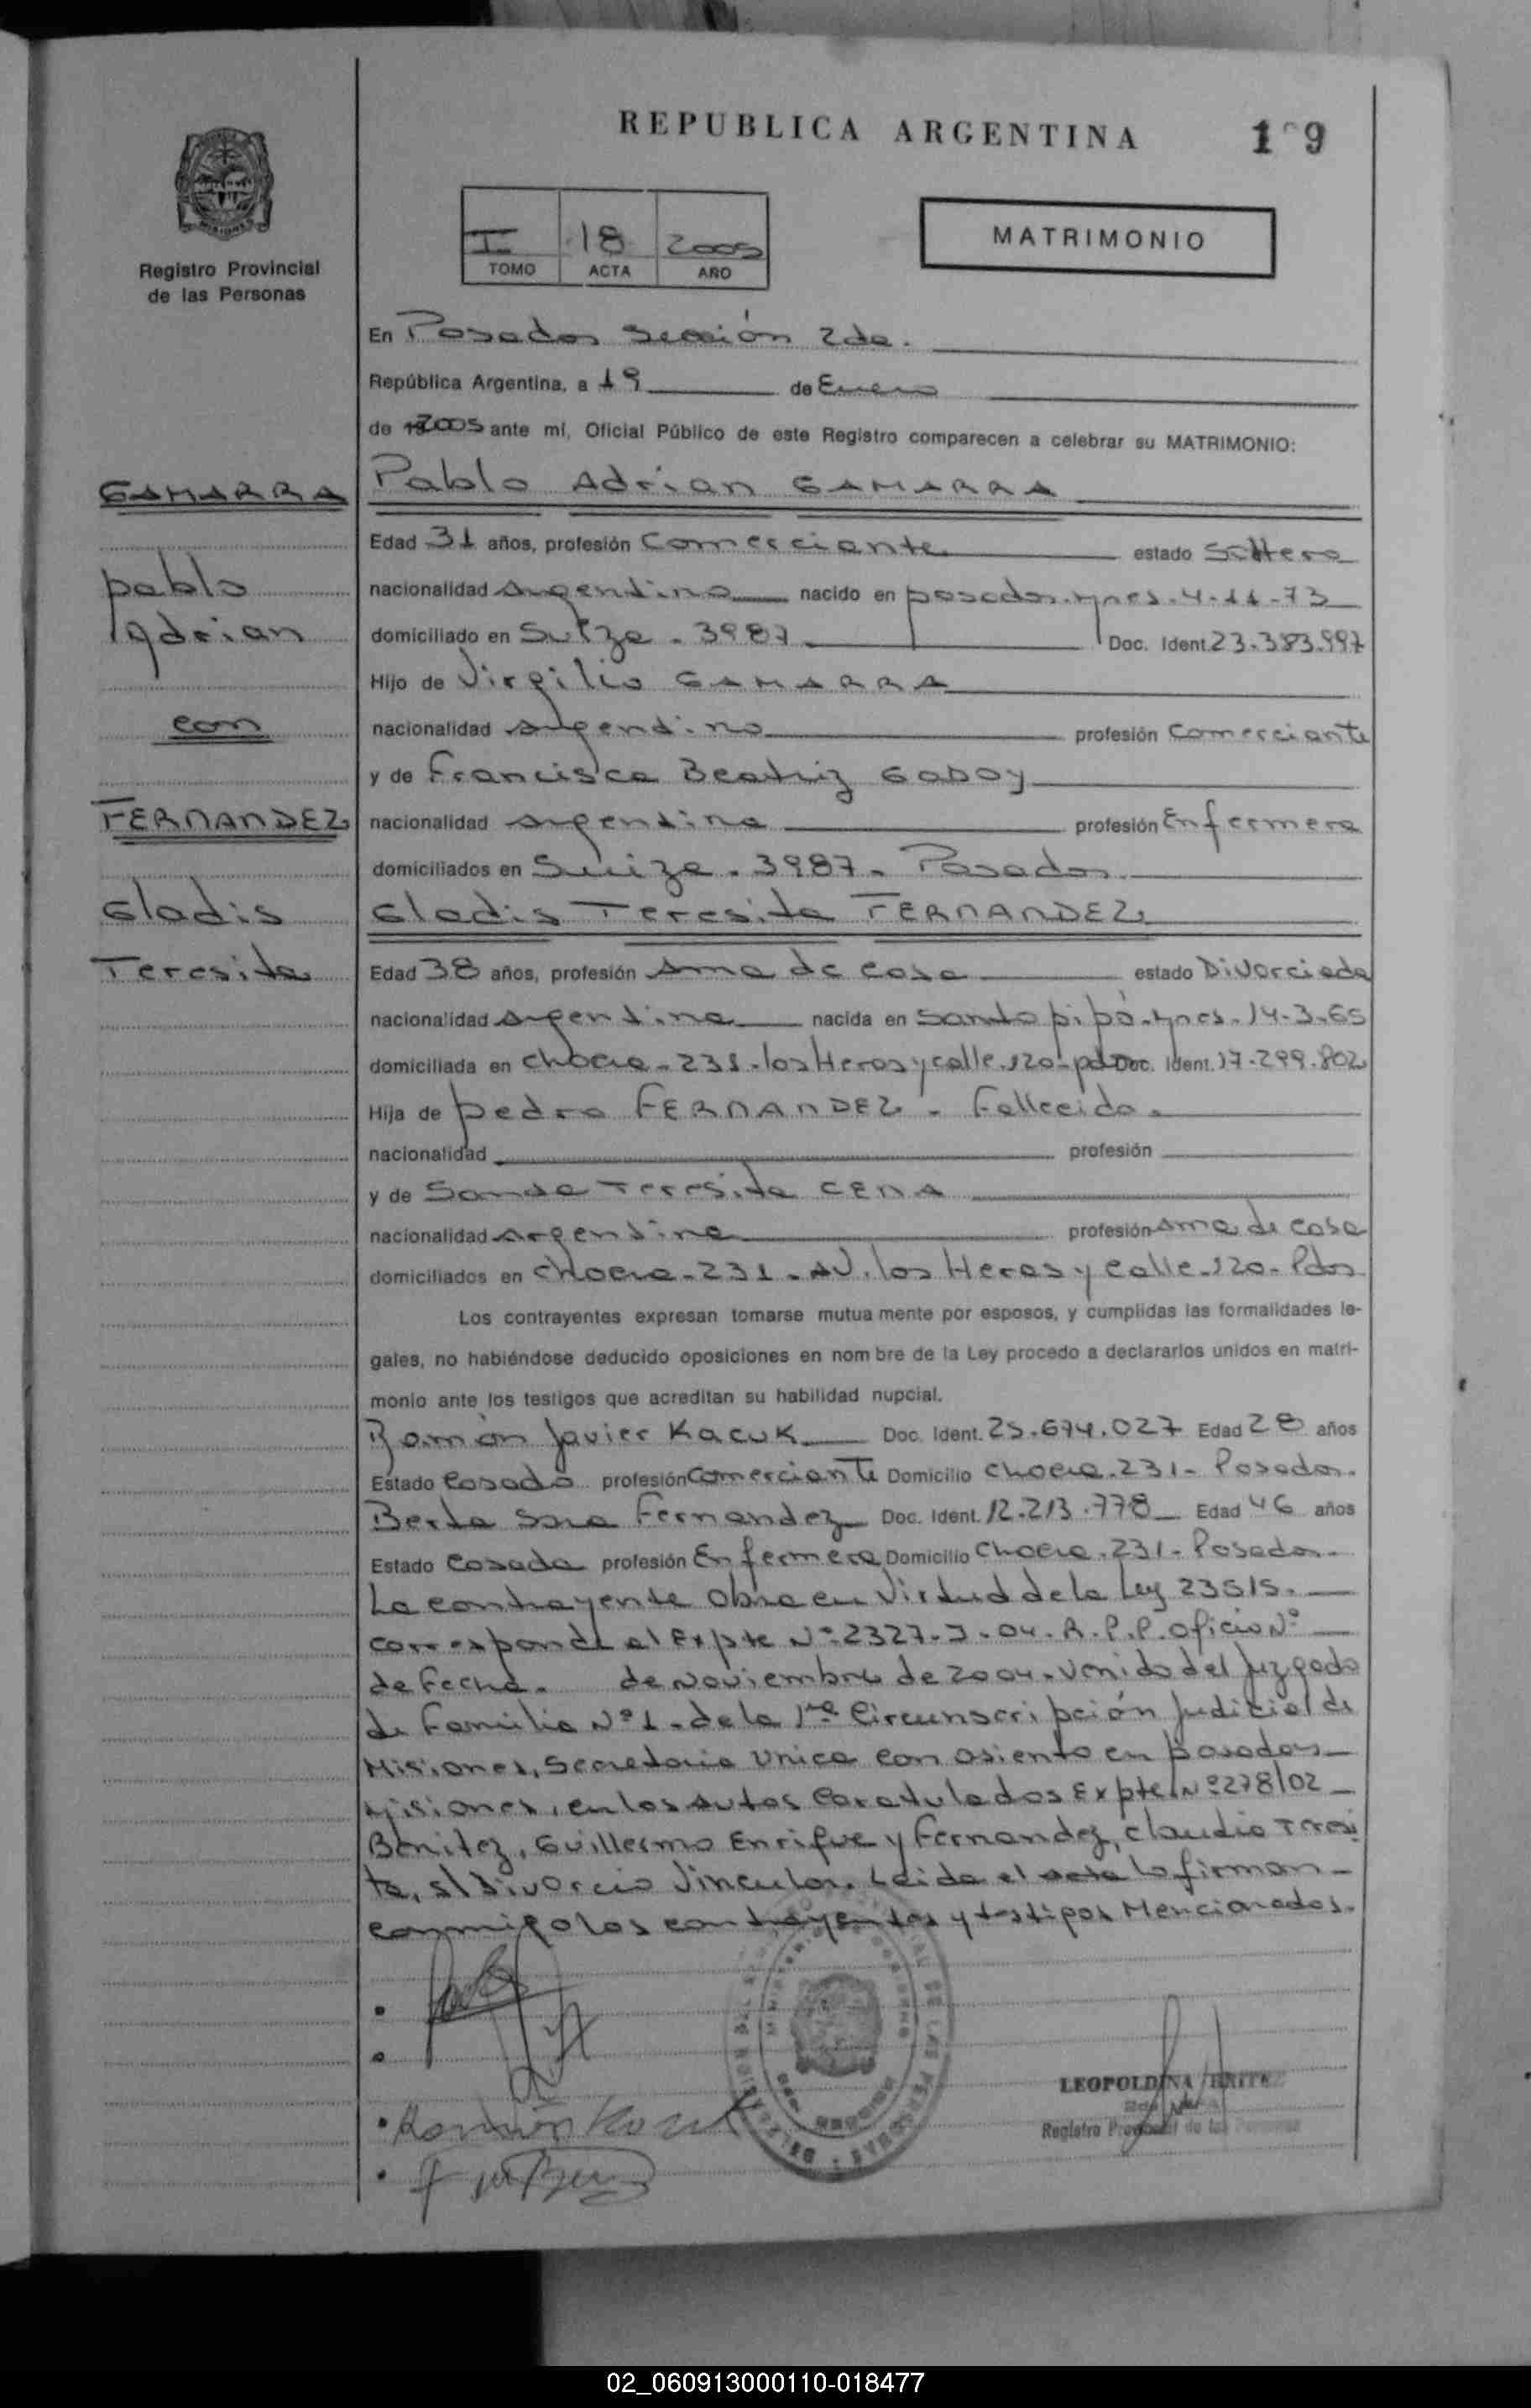 REPUBLICA ARGENTINA
19
Registro Provincial
de las Personas
I 18 2005
TOMO ACTA AÑO
MATRIMONIO
En Posadas Sección 2da.
República Argentina, a 19 de Enero
de 2005 ante mí, Oficial Público de este Registro comparecen a celebrar su MATRIMONIO:
GAMARRA
Pablo Adrian GAMARRA
Edad 31 años, profesión Comerciante estado Soltero
pablo
nacionalidad Argentino nacido en posadas. Mnes. 4-11-73
Adrian
domiciliado en Suiza - 3987 Doc. Ident. 23.383.997
Hijo de Virgilio GAMARRA
con
nacionalidad Argentino profesión Comerciante
y de Francisca Beatriz GODOY
FERNANDEZ
nacionalidad Argentina profesión Enfermera
domiciliados en Suiza - 3987 - Posadas
Gladis
Gladis Teresita FERNANDEZ
Teresita
Edad 38 años, profesión Ama de Casa estado Divorciada
nacionalidad Argentina nacida en Santo pipó. Mnes. 14-3-65
domiciliada en chacra - 231 - las Heras y calle 120 - pdas Doc. Ident. 17.299.802
Hija de pedro FERNANDEZ - Fallecido.
nacionalidad profesión
y de Teresita CENA
nacionalidad argentina profesión Ama de casa
domiciliados en chacra - 231 - AV. las Heras y calle - 120 - Pdas
Los contrayentes expresan tomarse mutua mente por esposos, y cumplidas las formalidades le-
gales, no habiéndose deducido oposiciones en nom bre de la Ley procedo a declararlos unidos en matri-
monio ante los testigos que acreditan su habilidad nupcial.
Ramón Javier Kacuk Doc. Ident. 25.674.027 Edad 28 años
Estado Casado profesión Comerciante Domicilio chacra - 231 - Posadas.
Berta Sara Fernandez Doc. Ident. 12.213.778 Edad 46 años
Estado Casada profesión Enfermera Domicilio Chacra - 231 - Posadas.
La contrayente obra en Virtud de la Ley 23515.
corresponde al Expte Nº 2327-J-04. R.P.P. oficio Nº
de Fecha. de Noviembre de 2004. Venido del Juzgado
de Familia Nº 1 - de la 1ra Circunscripción Judicial de
Misiones, Secretaria Unica con asiento en posadas
Misiones, en los Autos Caratulados Expte Nº 278/02
Benitez, Guillermo Enrique y Fernandez, claudia Teresi
ta, s/ Divorcio Vincular. Leida el acta la firman
conmigo los contrayentes y testigos Mencionados.
LEOPOLDINA BRITEZ
Registro Provincial de las Personas
02_060913000110-018477